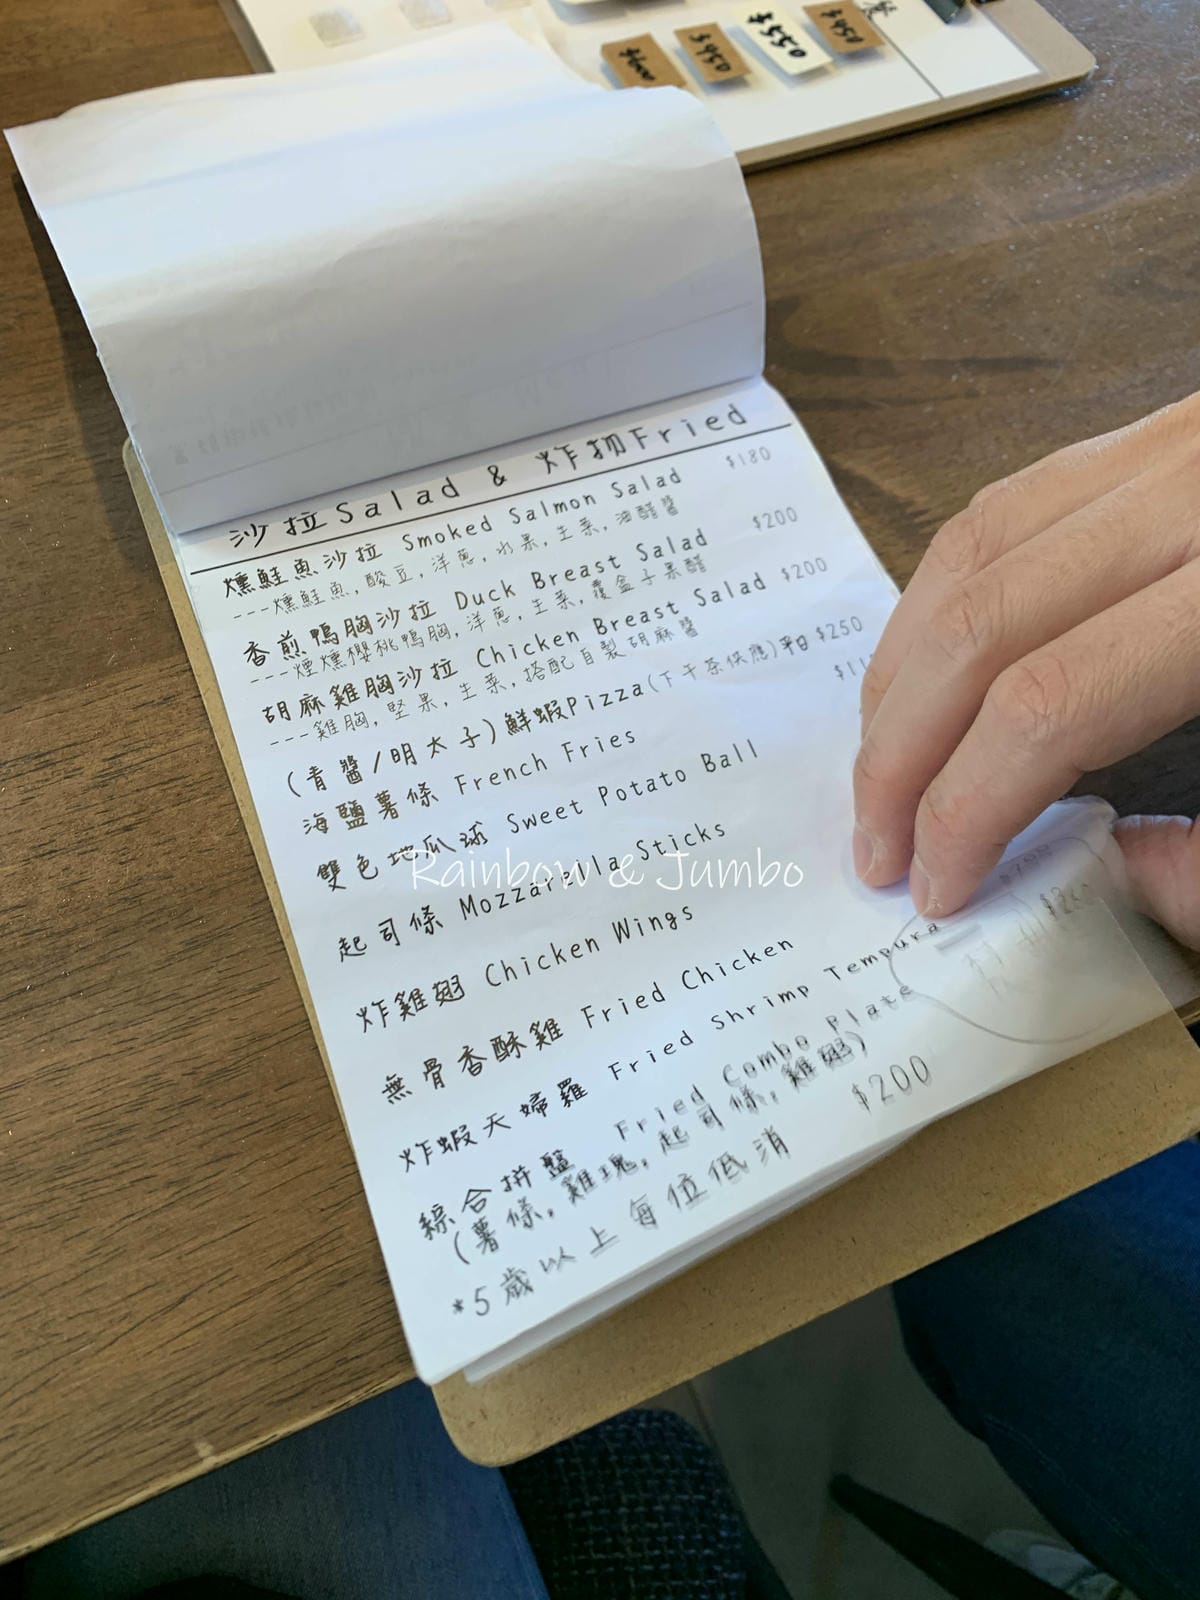 $550
沙拉Salad & 炸物Fried
燻鮭魚沙拉 Smoked Salmon Salad $180
---燻鮭魚,酸豆,洋蔥,水果,生菜,油醋醬
香煎鴨胸沙拉 Duck Breast Salad $200
---煙燻櫻桃鴨胸,洋蔥,生菜,覆盆子果醋
胡麻雞胸沙拉 Chicken Breast Salad $200
---雞胸,堅果,生菜,搭配自製胡麻醬
(青醬/明太子)鮮蝦Pizza(下午茶供應)平日 $250
海鹽薯條 French Fries
雙色地瓜球 Sweet Potato Ball
起司條 Mozzarella Sticks
Rainbow & Jumbo
炸雞翅 Chicken Wings
無骨香酥雞 Fried Chicken
炸蝦天婦羅 Fried Shrimp Tempura
綜合拼盤 Fried Combo Plate
(薯條,雞塊,起司條,雞翅)
*5歲以上每位低消 $200